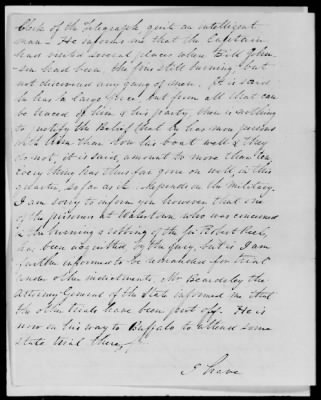 Clerk of the Telegraph quit an intelligent
man - He informs me that the Captain
had visited several places where Bill John-
son had been, the fires still burning, but
not discovered any gang of men, it is said
he has a large force, but from all that can
be traced of him & his party, there is nothing
to justify the belief that he has more persons
with him than his boat will & they
do not, it is said, amount to more than ten,
every thing has thus far gone on well, in this
quarter, so far as it depends on the military.
I am sorry to inform you however that one
of the prisoners at Watertown who was concerned
in the burning & robbing of the Sr. Robert Peel,
has been acquitted by the jury, but is I am
further informed to be remanded for trial
under other indictments, Mr Beardsley the
Attorney General of the State informed me that
the other trials have been put off. He is
now on his way to Buffalo to attend some
state trial there,
I have